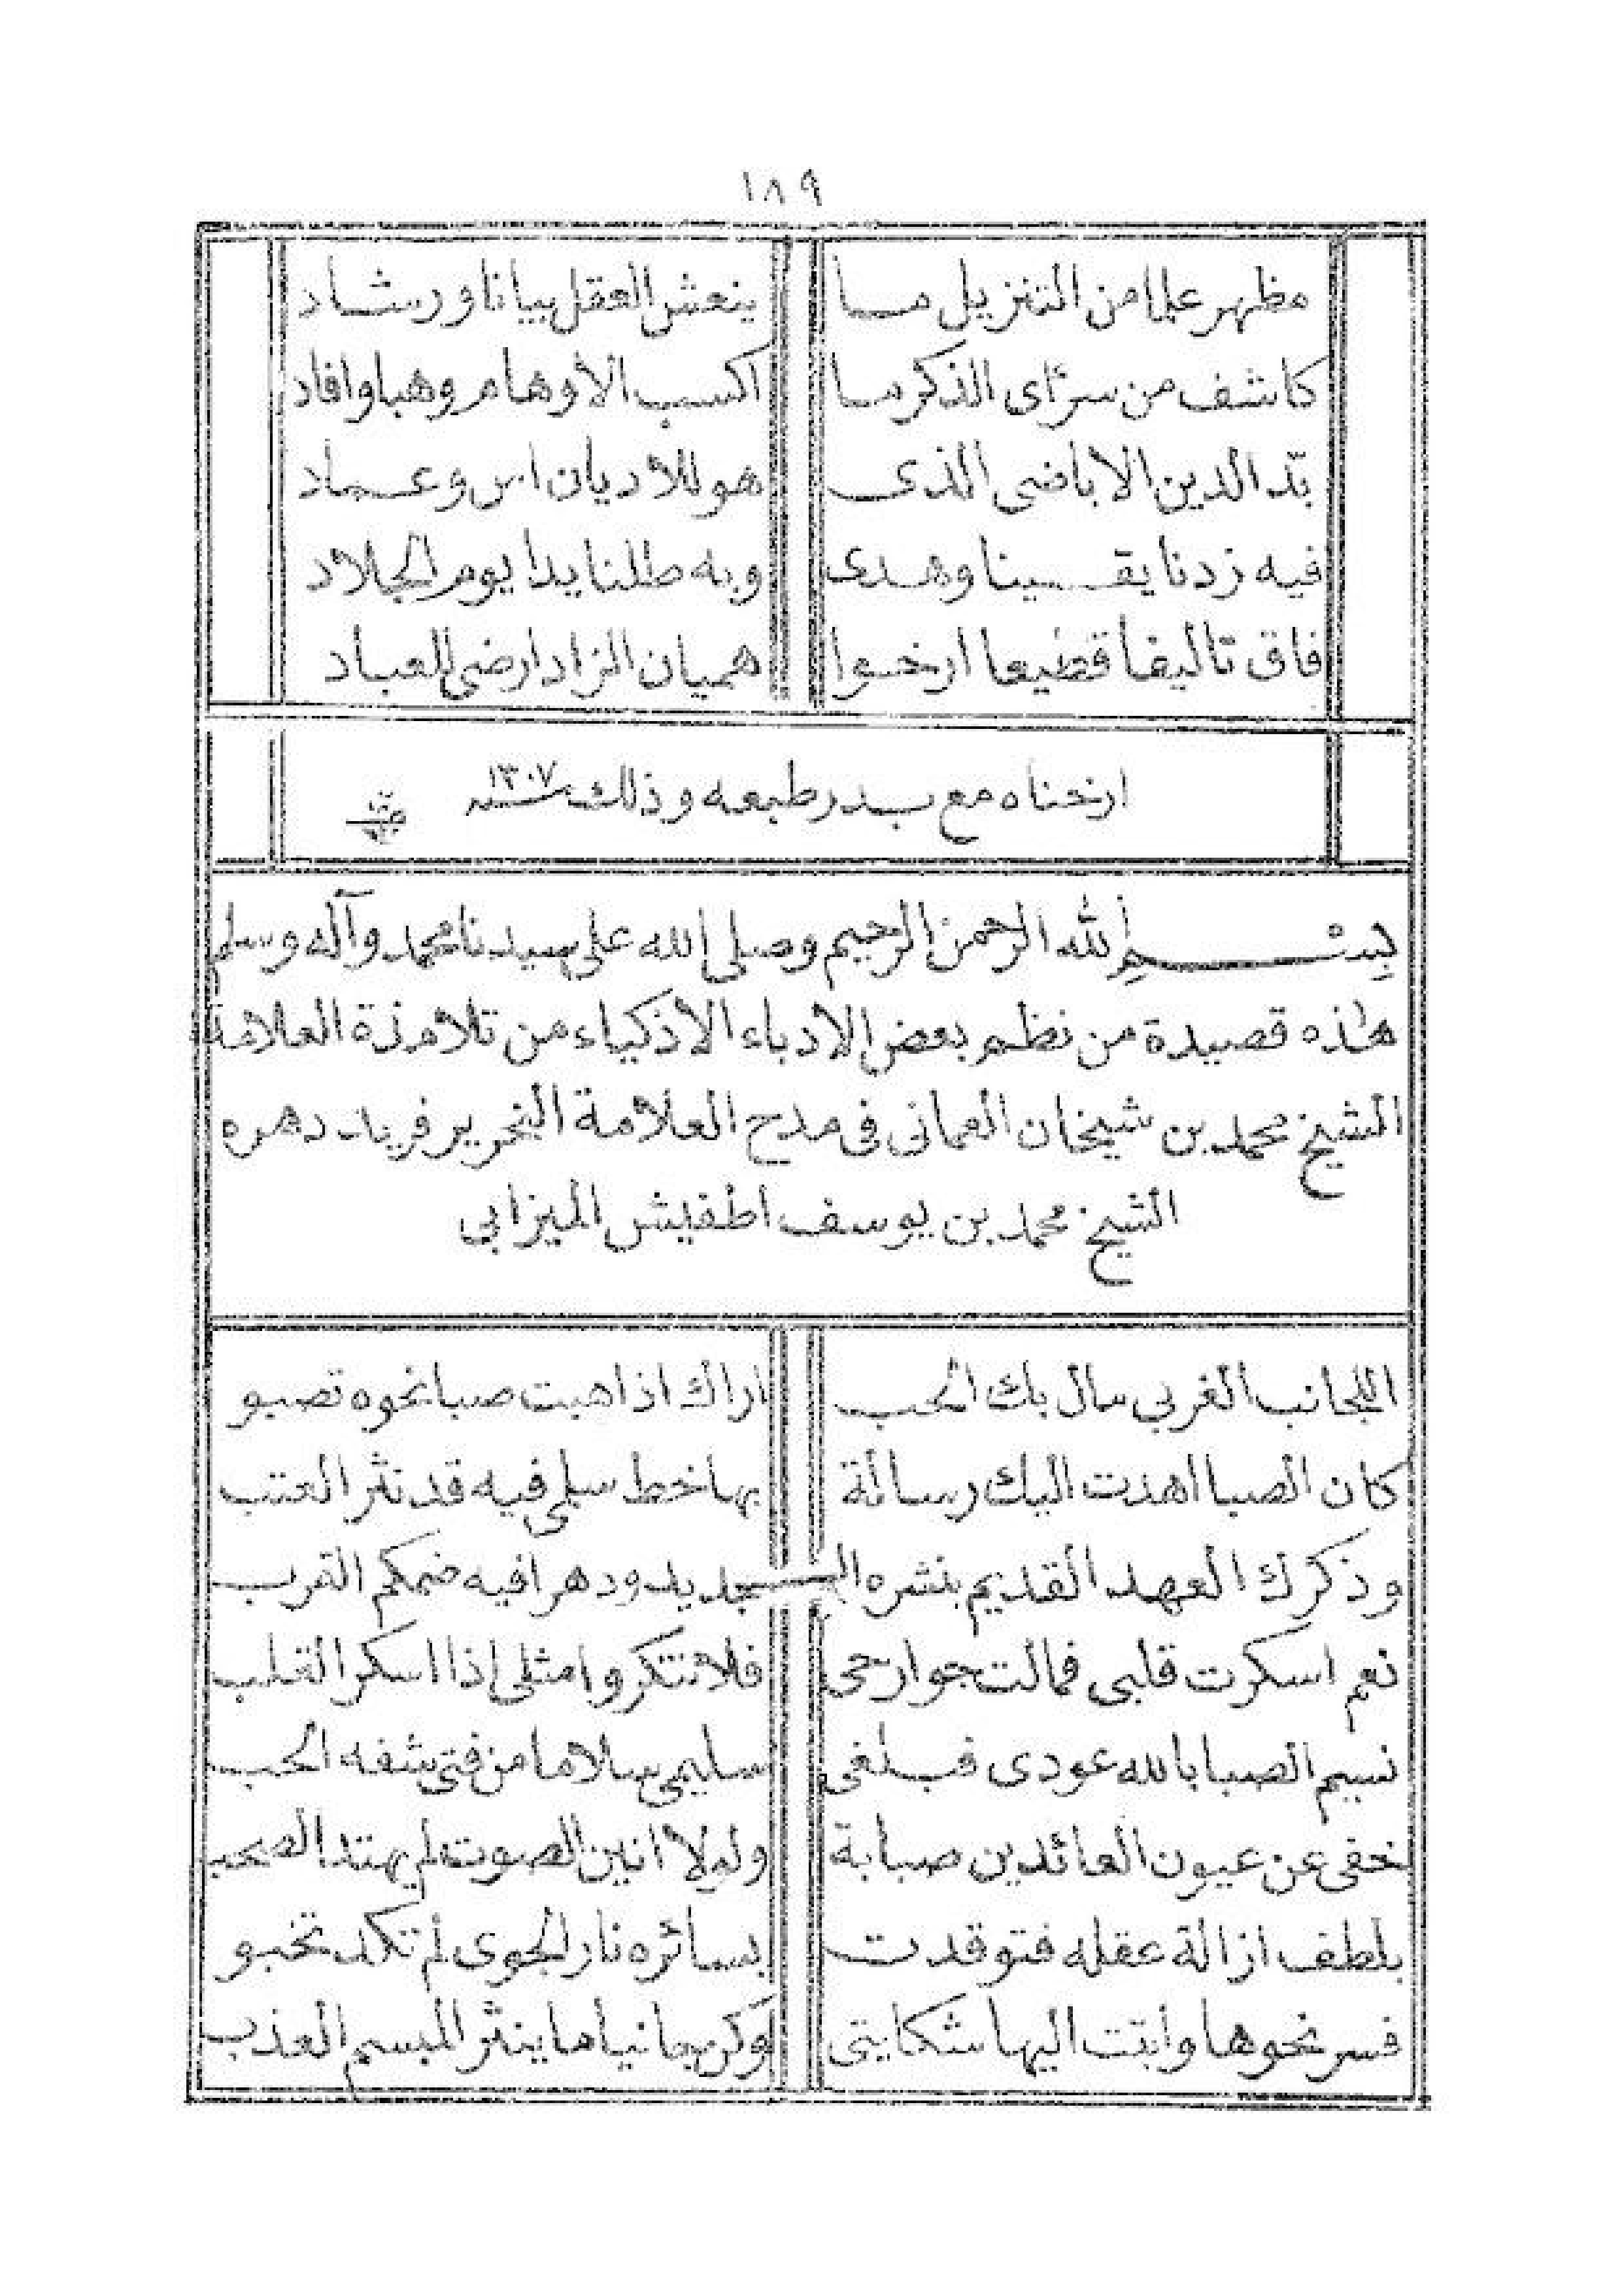 ١٨٩
مظهر علما من التنزيل ما ينعش العقل بيانا ورشاد
كاشف من سرّ اى الذكر ما اكسب الأوهام وهبا وافاد
بدّ الدين الاباضى الذى هو للأديان اس وعماد
فيه زدنا يقينا وهدى وبه طلنا يدا يوم الجلاد
فاق تأليفا قطيعا ارخوا هميان الزاد ارضى للعباد
ارخناه مع بدر طبعه وذلك سنه ١٣٠٧
بسم الله الرحمن الرحيم وصلى الله على سيدنا محمد وآله وسلم
هاذه قصيدة من نظم بعض الادباء الأذكياء من تلامذة العلامة
الشيخ محمد بن شيخان العمانى فى مدح العلامة النحرير فريد دهره
الشيخ محمد بن يوسف اطفيش الميزابى
اللجانب الغربي سال بك الحب اراك اذا هبت صبا نحوه تصبو
كان الصبا اهدت اليك رسالة بها خط سلمى فيه قد نثر العتب
وذكرك العهد القديم بنشره الجديد ودهرا فيه ضمكم القرب
نعم اسكرت قلبى فمالت جوارحى فلا تنكروا مثلى إذا اسكر القلب
نسيم الصبا بالله عودى فبلغى سليمى سلاما من فتى شفه الحب
خفى عن عيون العائدين صبابة ولولا انين الصوت لم يهتد الصحب
بلطف ازالة عقله فتوقدت بسائره نار الجوى لم تكد تخبو
فسر نحوها وابتت اليها شكايتى وكن جانيا ما ينثر المبسم العذب